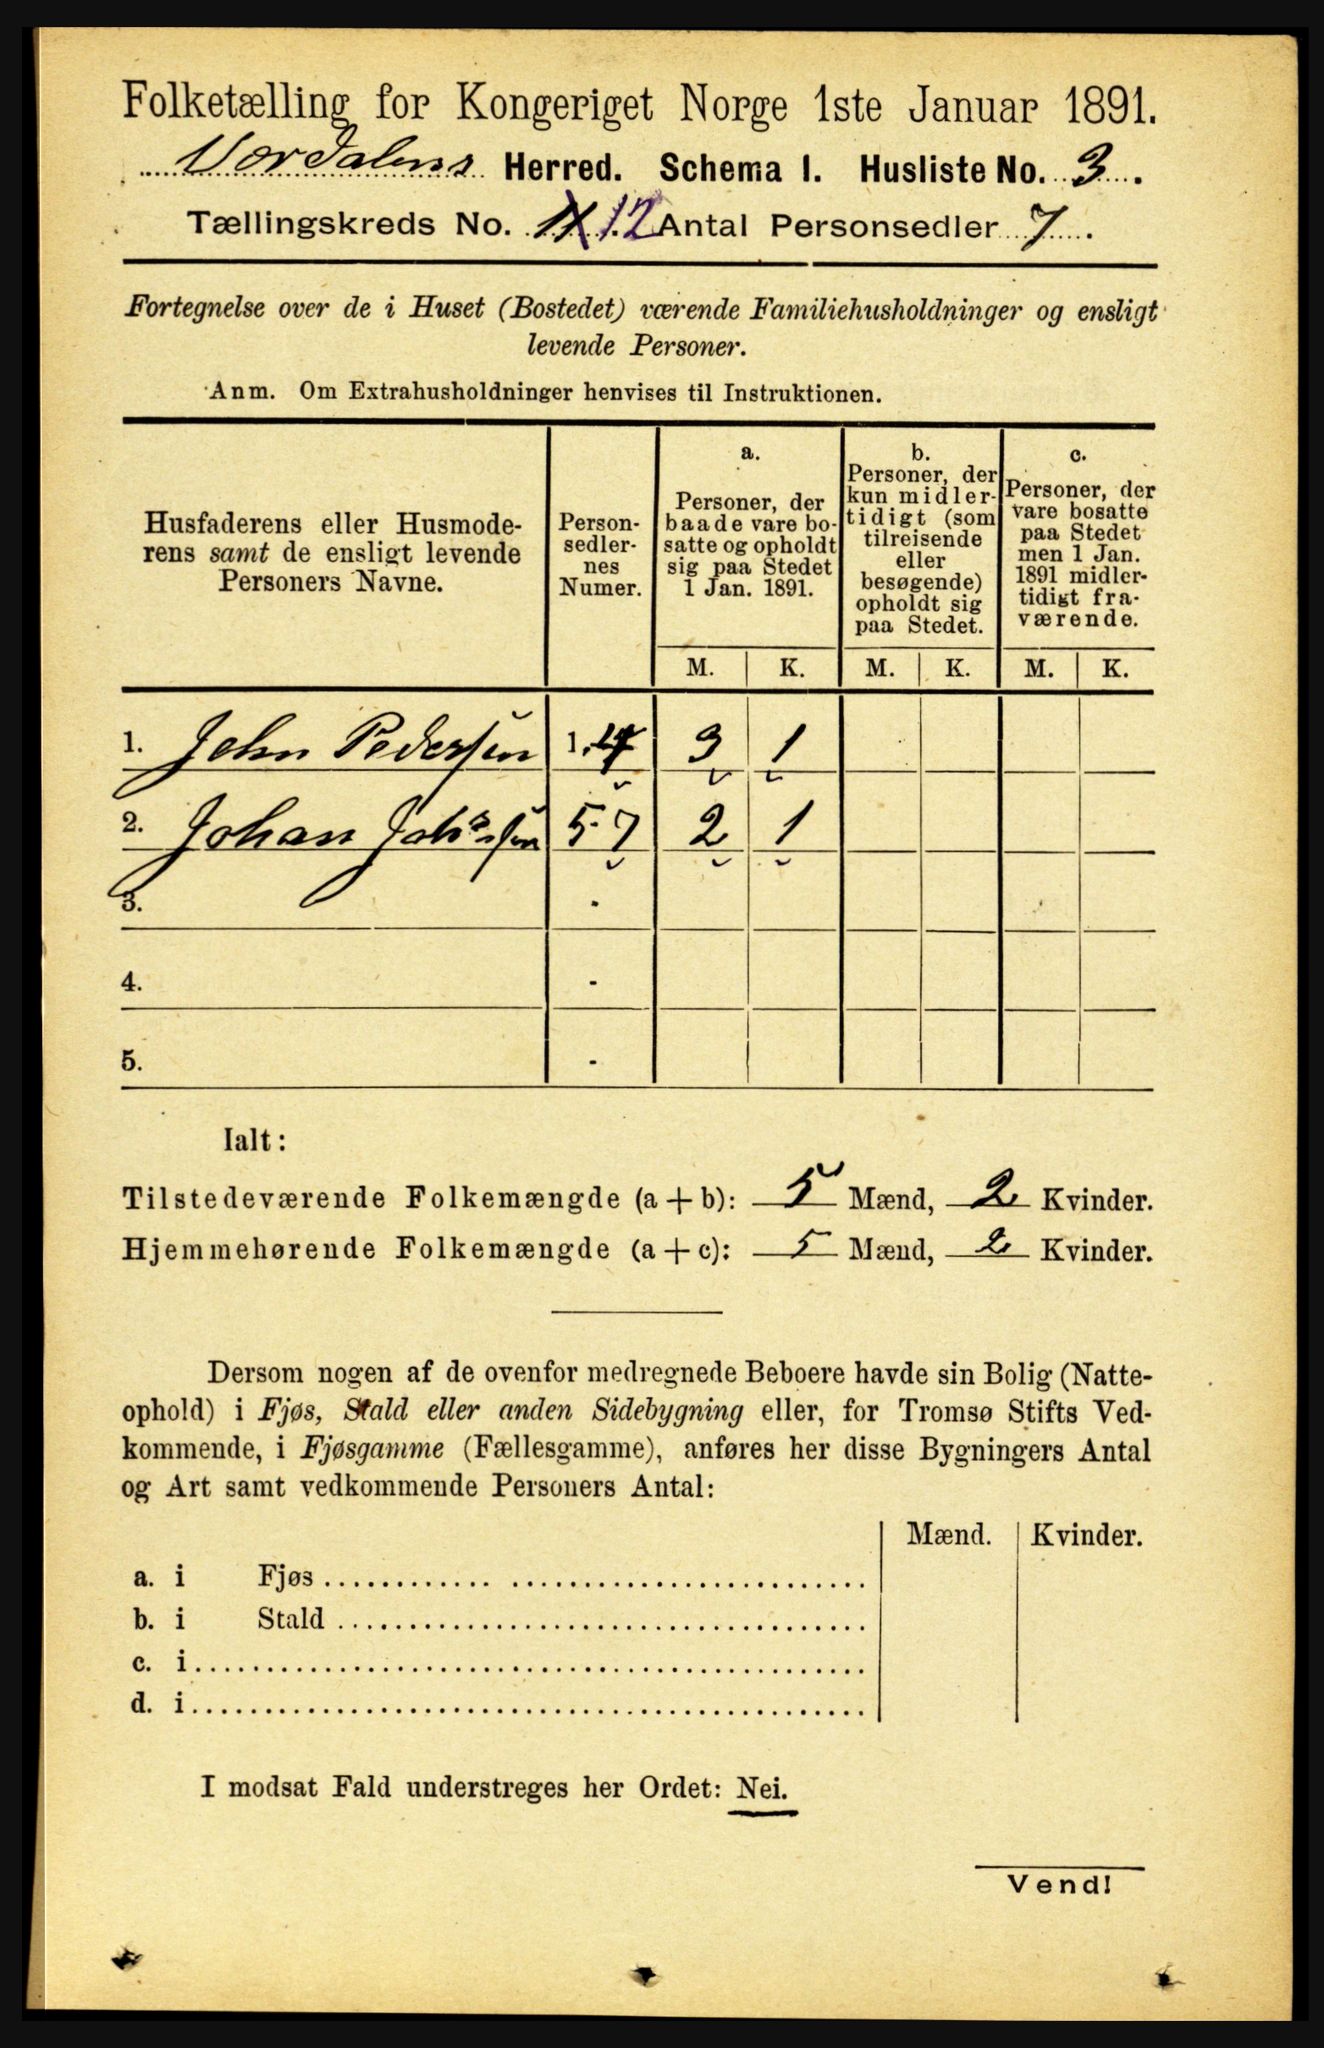 Folketælling for Kongeriget Norge 1ste Januar 1891.
Værdalens Herred. Schema I. Husliste No. 3.
Tællingskreds No. 11 12 Antal Personsedler 7.
Fortegnelse over de i Huset (Bostedet) værende Familiehusholdninger og ensligt
levende Personer.
Anm. Om Extrahusholdninger henvises til Instruktionen.
Husfaderens eller Husmode-
rens samt de ensligt levende
Personers Navne.
Person-
sedler-
nes
Numer.
a.
Personer, der
baade vare bo-
satte og opholdt
sig paa Stedet
1 Jan. 1891.
b.
Personer, der
kun midler-
tidigt (som
tilreisende
eller
besøgende)
opholdt sig
paa Stedet.
c.
Personer, der
vare bosatte
paa Stedet
men 1 Jan.
1891 midler-
tidigt fra-
værende.
M. K. M. K. M. K.
1. John Pedersen 1.-4 3 1
2. Johan Johnsen 5-7 2 1
3. -
4. -
5. -
Ialt:
Tilstedeværende Folkemængde (a + b): 5 Mænd, 2 Kvinder.
Hjemmehørende Folkemængde (a + c): 5 Mænd, 2 Kvinder.
Dersom nogen af de ovenfor medregnede Beboere havde sin Bolig (Natte-
ophold) i Fjøs, Stald eller anden Sidebygning eller, for Tromsø Stifts Ved-
kommende, i Fjøsgamme (Fællesgamme), anføres her disse Bygningers Antal
og Art samt vedkommende Personers Antal:
Mænd. Kvinder.
a. i Fjøs
b. i Stald
c. i
d. i
I modsat Fald understreges her Ordet: Nei.
Vend!